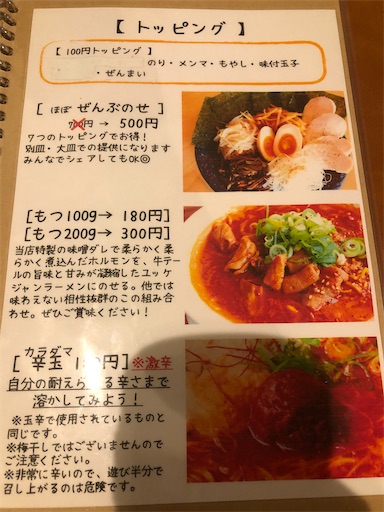 【 トッピング 】
【100円トッピング】
のり・メンマ・もやし・味付玉子
・ぜんまい
[ ほぼ ぜんぶのせ ]
円 → 500円
7つのトッピングでお得！
別皿・大皿での提供になります
みんなでシェアしてもOK◎
[もつ100g→ 180円]
[もつ200g→ 300円]
当店特製の味噌ダレで柔らかく柔
らかく煮込んだホルモンを、牛テー
ルの旨味と甘みが凝縮したユッケ
ジャンラーメンにのせる。他では
味わえない相性抜群のこの組み合
わせ。ぜひご賞味ください！
カラダマ
[ 辛玉 1 0円]※激辛
自分の耐えられる辛さまで
溶かしてみよう！
※玉辛で使用されているものと
同じです。
※梅干しではございませんので
ご注意ください。
※非常に辛いので、遊び半分で
召し上がるのは危険です。